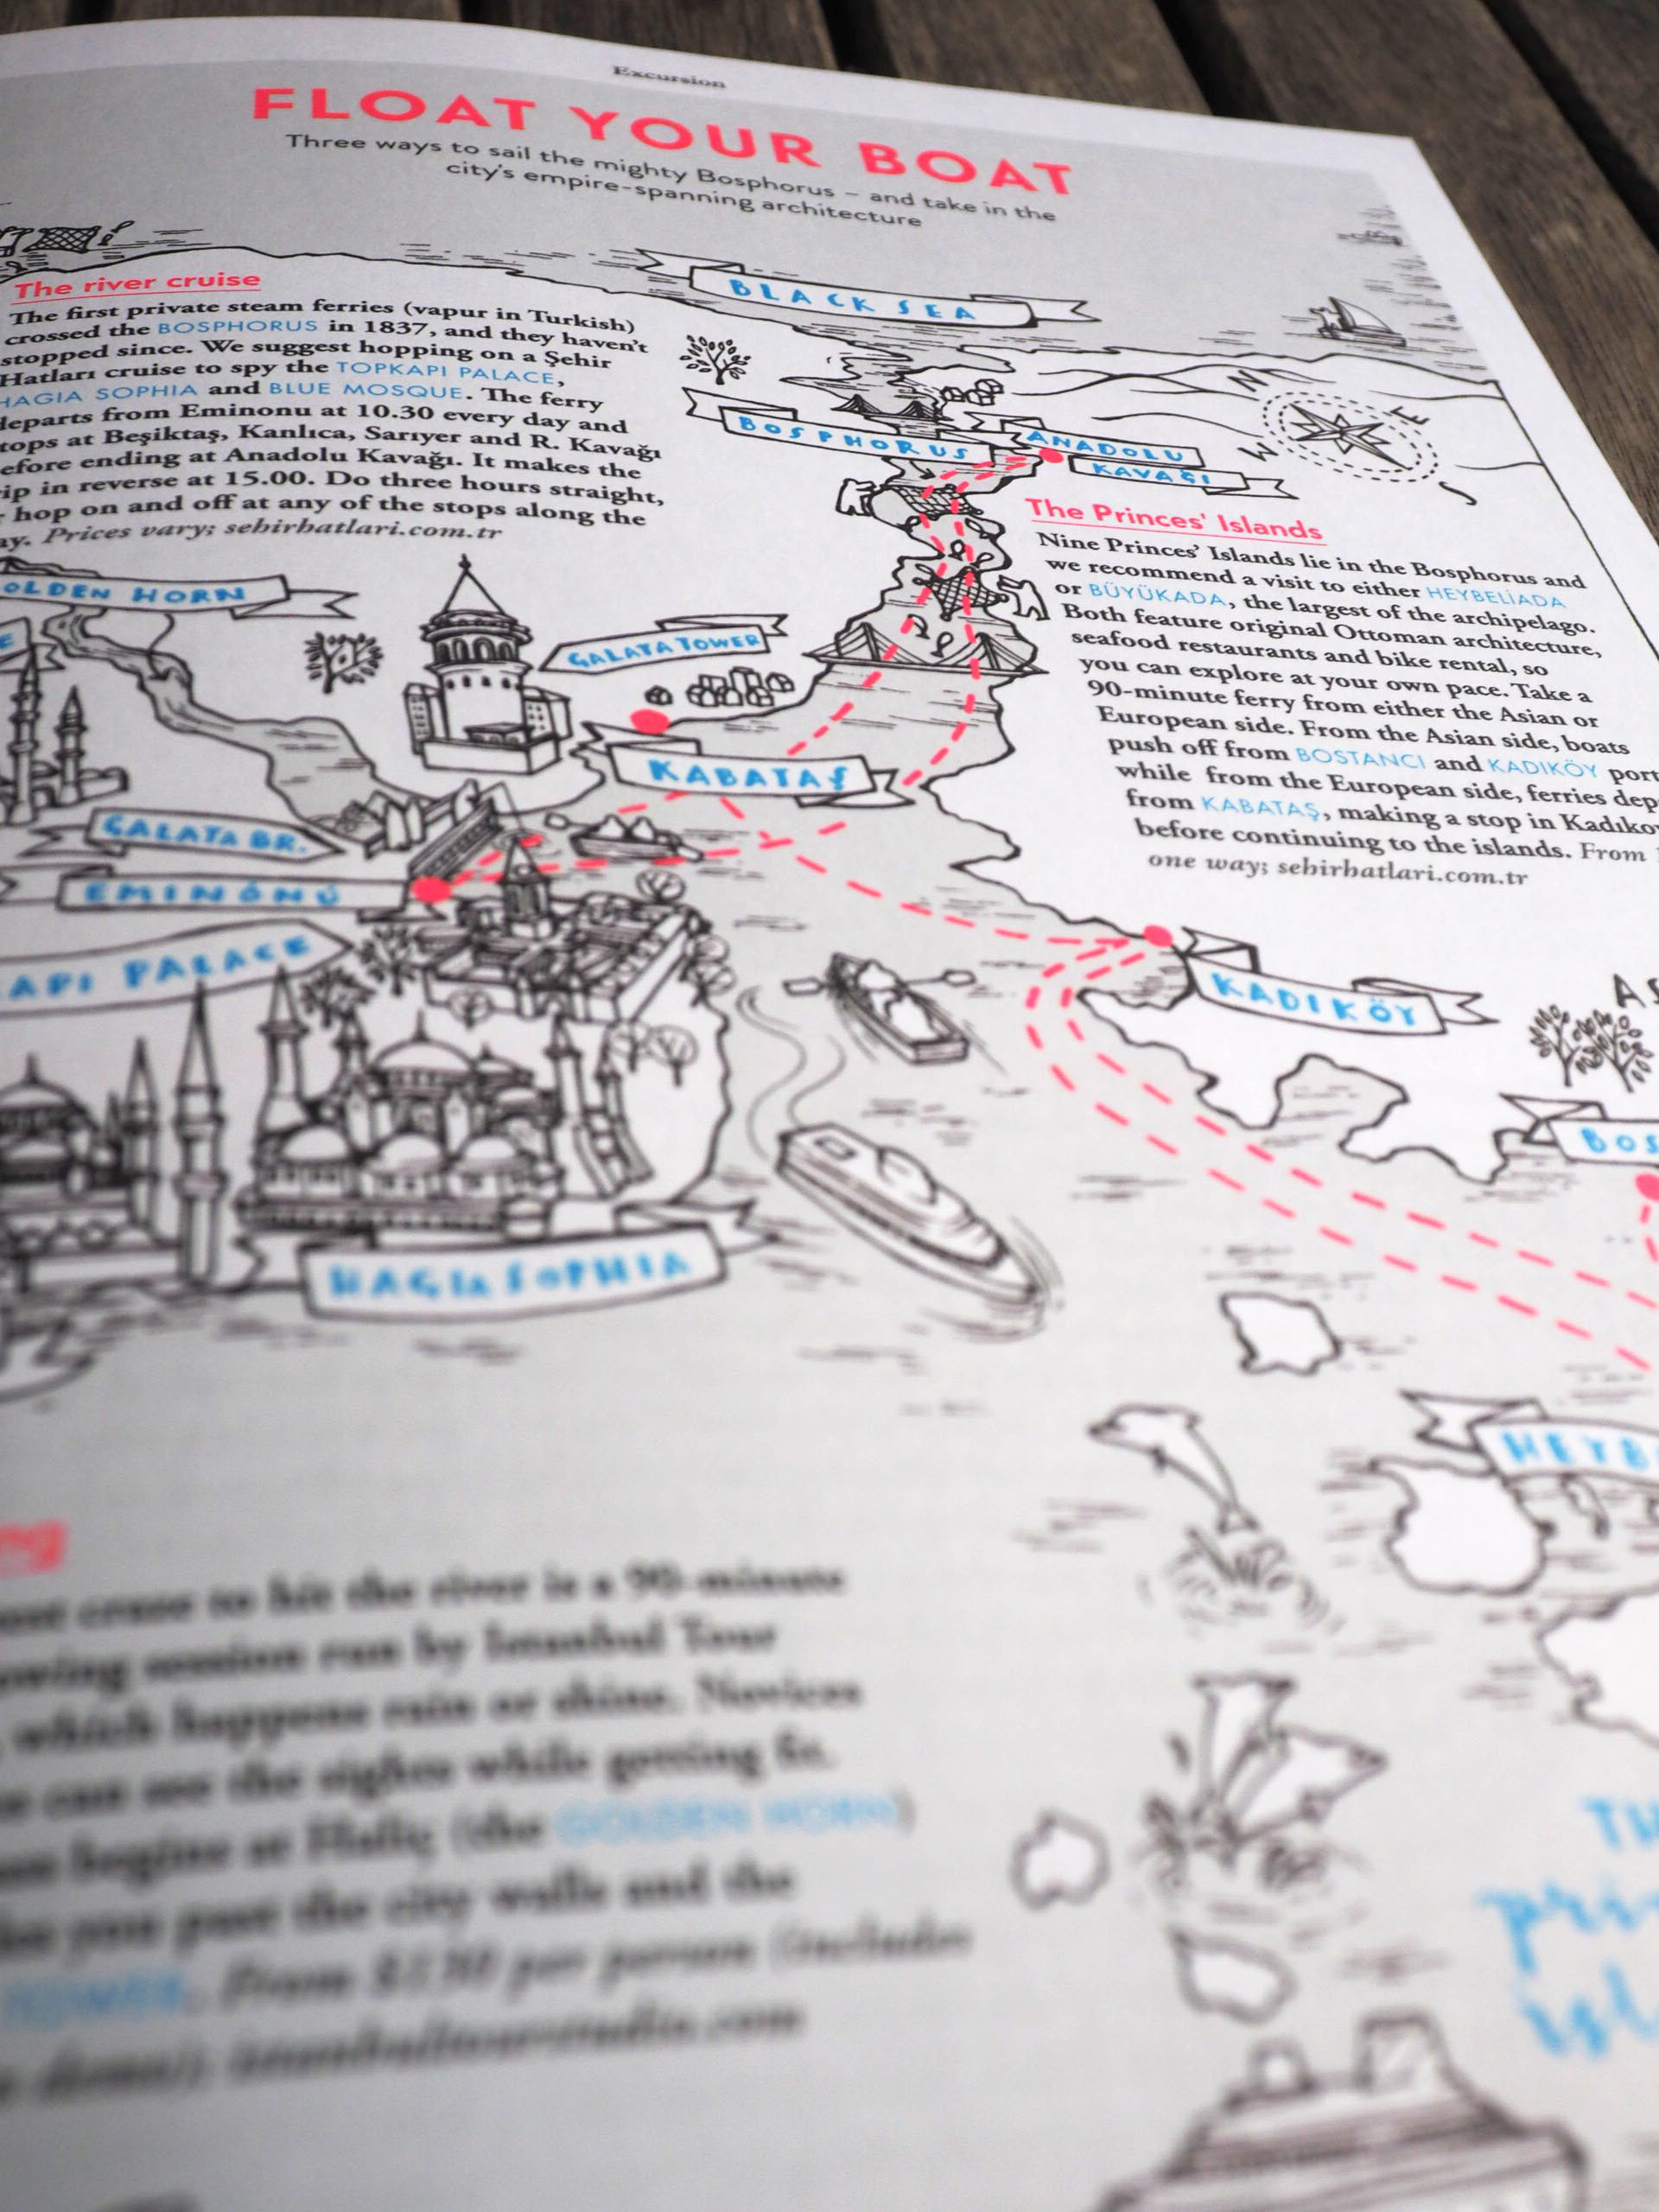 Excursion
FLOAT YOUR BOAT
Three ways to sail the mighty Bosphorus – and take in the
city's empire-spanning architecture
The river cruise
The first private steam ferries (vapur in Turkish)
crossed the BOSPHORUS in 1837, and they haven't
stopped since. We suggest hopping on a Şehir
Hatları cruise to spy the TOPKAPI PALACE,
HAGIA SOPHIA and BLUE MOSQUE. The ferry
departs from Eminonu at 10.30 every day and
stops at Beşiktaş, Kanlıca, Sarıyer and R. Kavağı
before ending at Anadolu Kavağı. It makes the
ip in reverse at 15.00. Do three hours straight,
hop on and off at any of the stops along the
ay. Prices vary; sehirhatlari.com.tr
BLACK SEA
BOSPHORUS
ANADOLU
KAVAĞI
N
E
W
S
The Princes' Islands
Nine Princes' Islands lie in the Bosphorus and
we recommend a visit to either HEYBELİADA
or BÜYÜKADA, the largest of the archipelago.
Both feature original Ottoman architecture,
seafood restaurants and bike rental, so
you can explore at your own pace. Take a
90-minute ferry from either the Asian or
European side. From the Asian side, boats
push off from BOSTANCI and KADIKÖY port
while from the European side, ferries dep
from KABATAŞ, making a stop in Kadıko
before continuing to the islands. From
one way; sehirhatlari.com.tr
OLDEN HORN
E
GALATA TOWER
KABATAŞ
GALATA BR.
EMINÖNÜ
API PALACE
KADIKÖY
AS
BOS
HAGIA SOPHIA
HEYB
ng
craze to hit the river is a 90-minute
owing session run by Istanbul Tour
which happens rain or shine. Novices
can see the sights while getting fit.
begins at Haliç (the GOLDEN HORN)
you past the city walls and the
TOWER. From $130 per person (includes
istanbultourstudio.com
TH
pri
isl